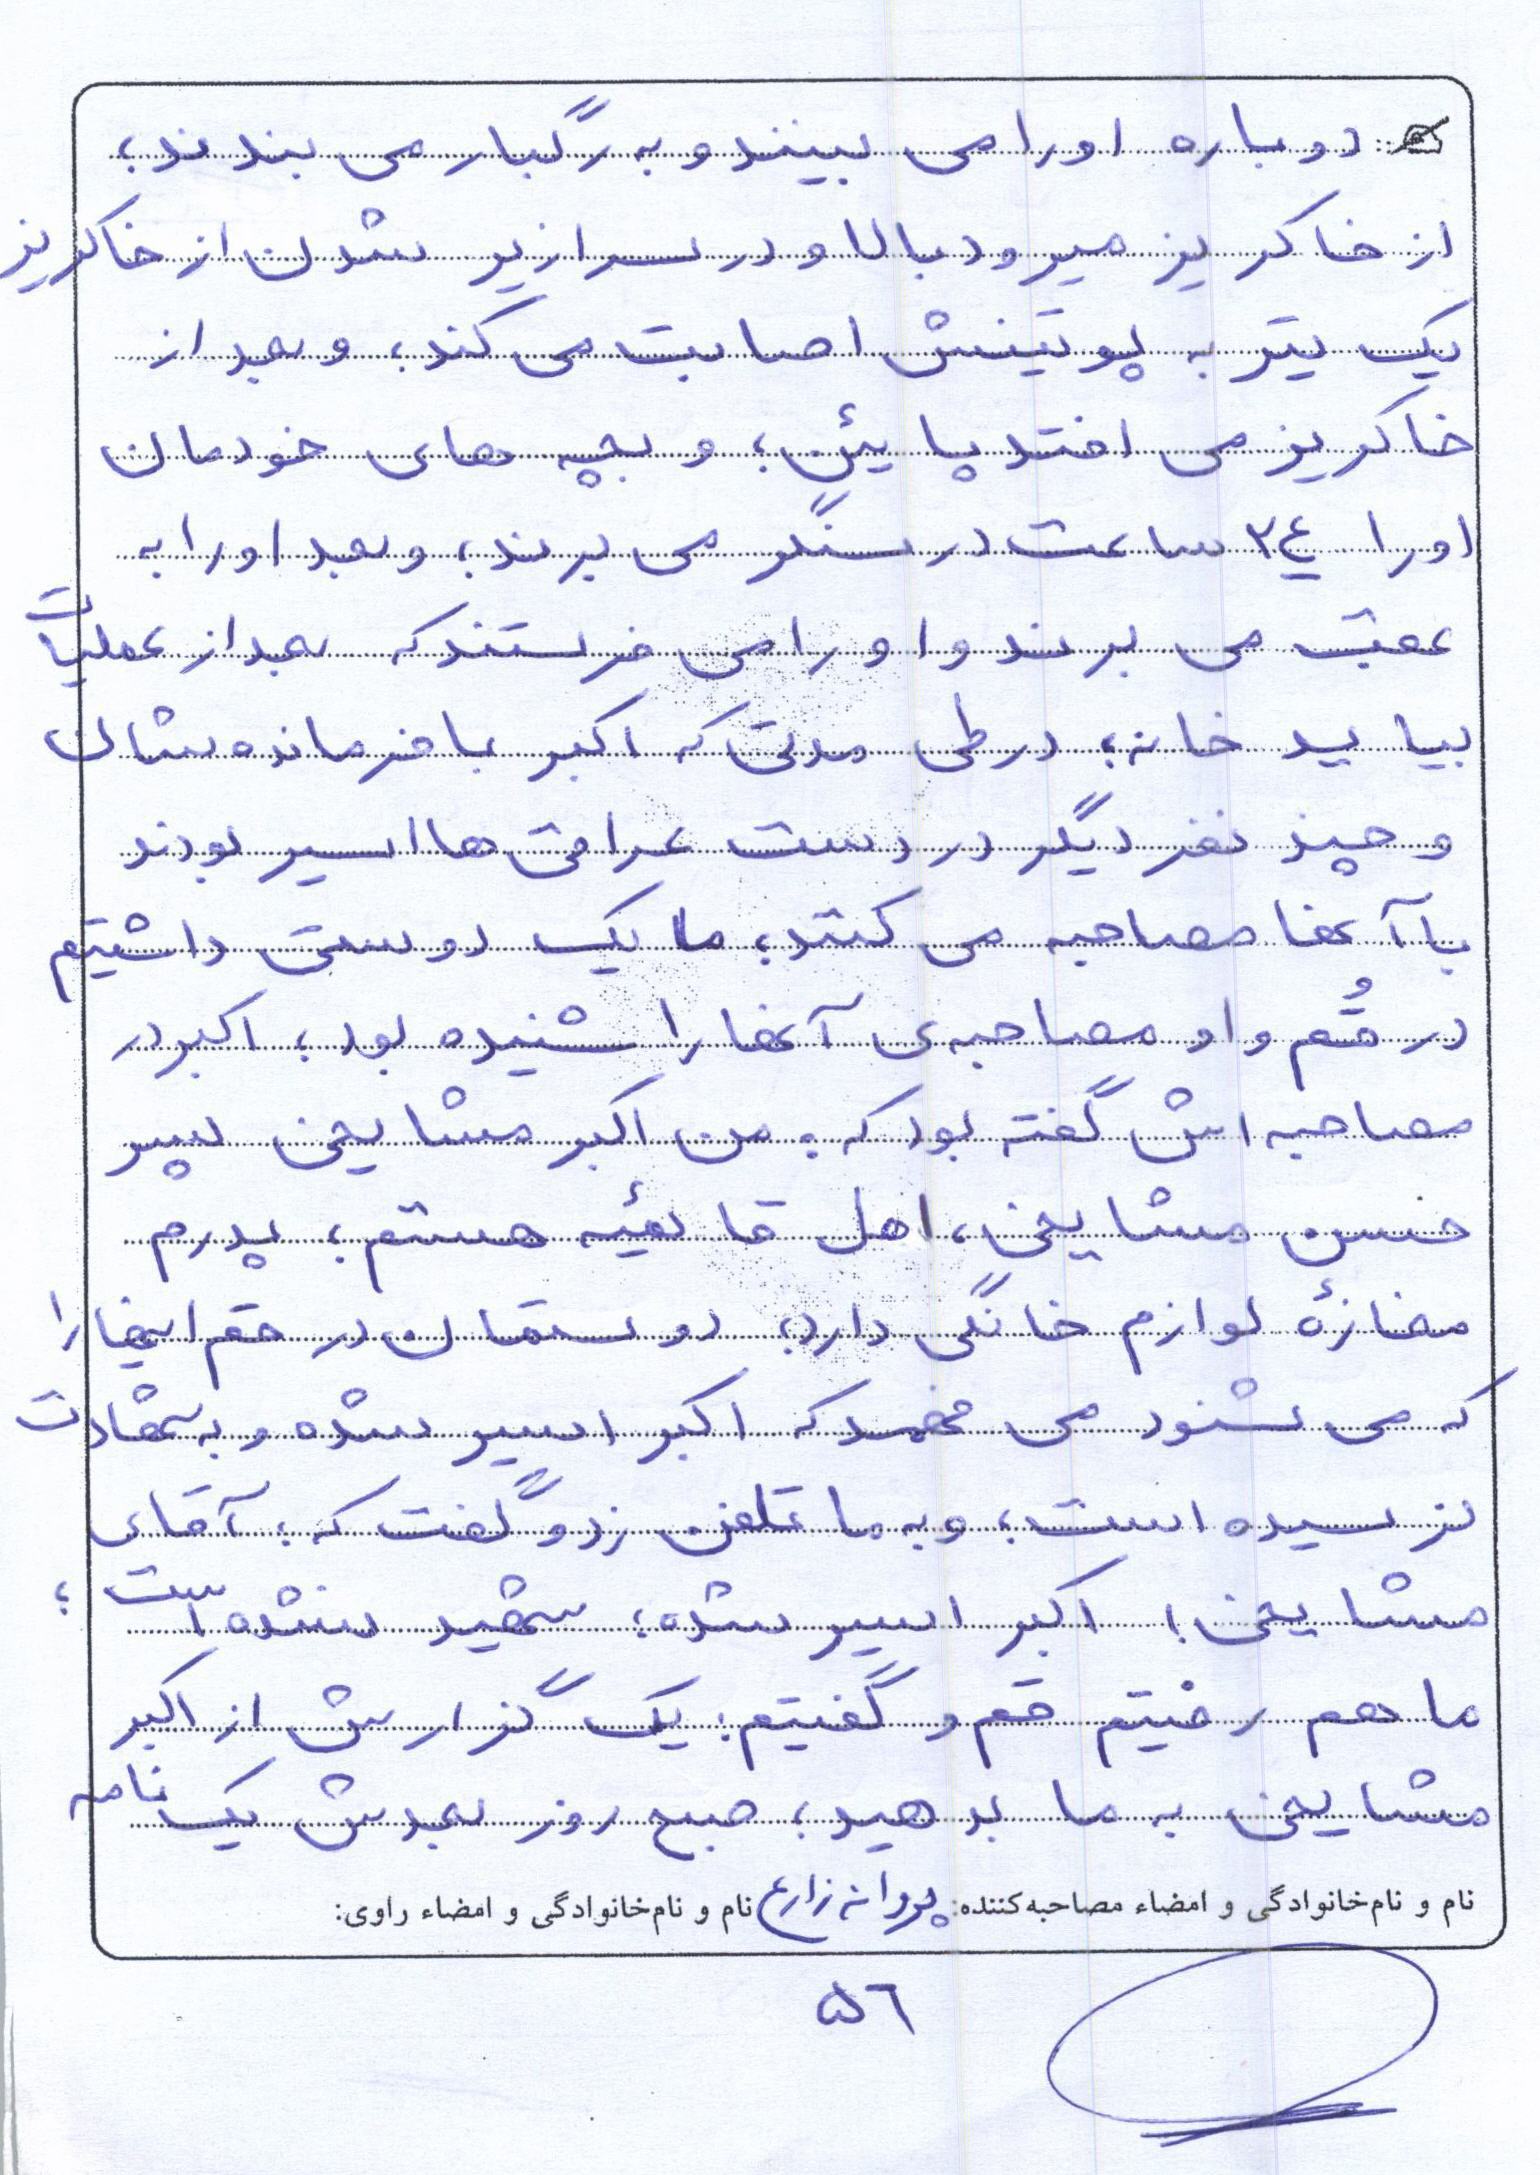 دوباره او را می بینند و به رگبار می بندند؛
از خاکریز میرود بالا و در سرازیر شدن از خاکریز
یک تیر به پوتینش اصابت می کند؛ و بعد از
خاکریز می افتد پایئن؛ و بچه های خودمان
او را ۲٤ ساعت در سنگر می برند؛ و بعد او را به
عقب می برند و او را می فرستند که بعد از عملیات
بیاید خانه؛ در طی مدتی که اکبر با فرمانده شان
و چند نفر دیگر در دست عراقی ها اسیر بودند
با آنها مصاحبه می کنند؛ ما یک دوستی داشتیم
در قُم و او مصاحبه ی آنها را شنیده بود؛ اکبر در
مصاحبه اش گفته بود که: من اکبر مشایخی پسر
حسن مشایخی، اهل قائمیه هستم؛ پدرم
مغازهٔ لوازم خانگی دارد؛ دوستمان در قم اینها را
که می شنود می فهمد که اکبر اسیر شده و به شهادت
نرسیده است؛ و به ما تلفن زد و گفت که: آقای
مشایخی؛ اکبر اسیر شده؛ شهید نشده است؛
ما هم رفتیم قم و گفتیم: یک گزارش از اکبر
مشایخی به ما بدهید؛ صبح روز بعدش یک نامه
نام و نام خانوادگی و امضاء مصاحبه کننده: پروانه زارع نام و نام خانوادگی و امضاء راوی:
۵٦